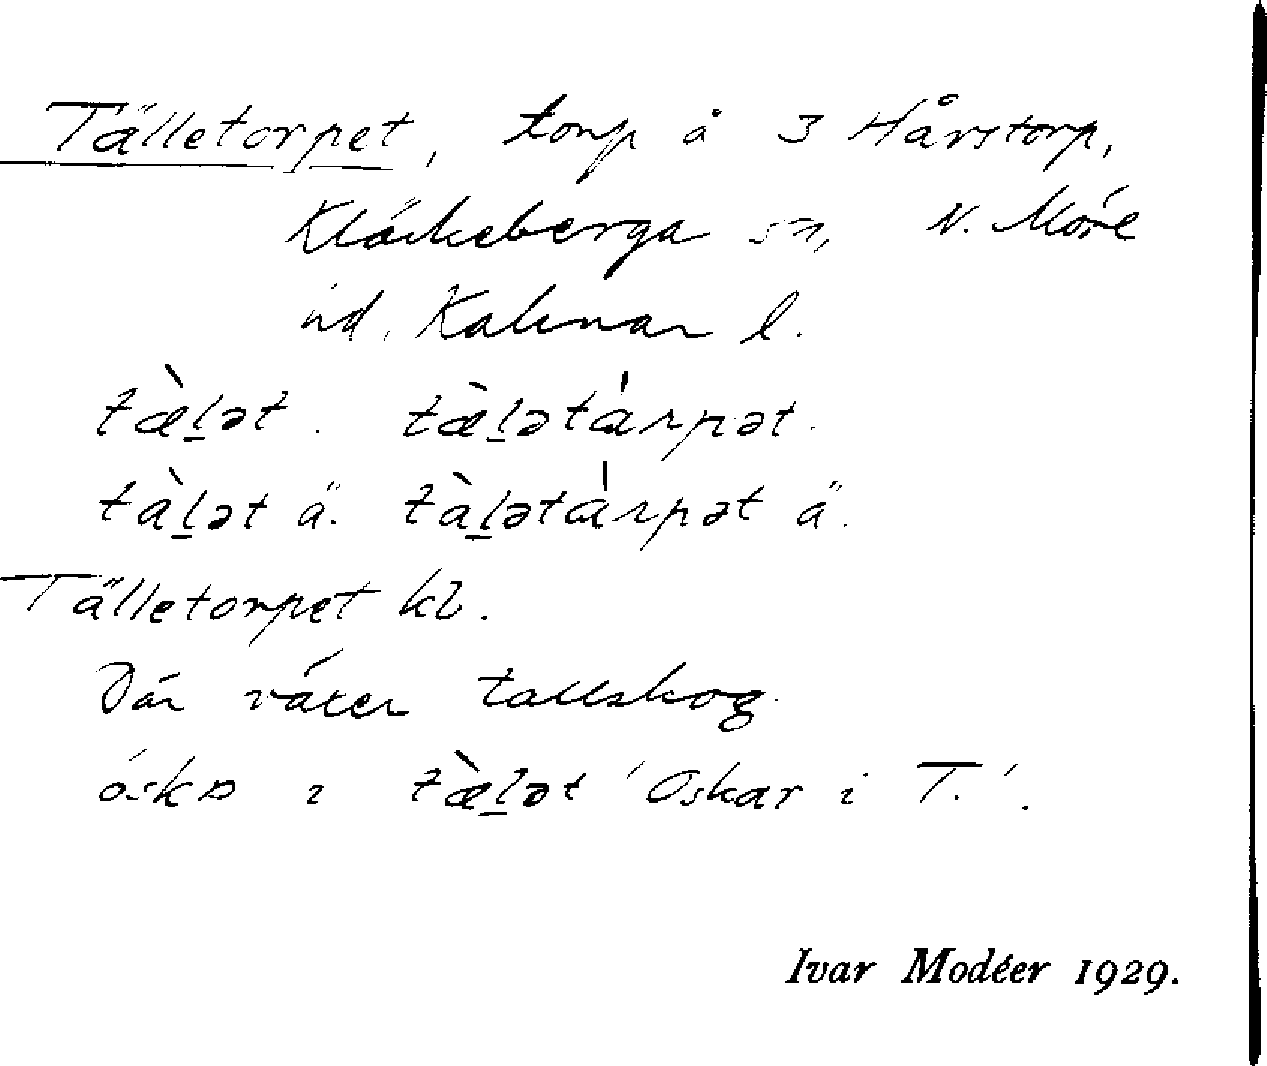 Tälletorpet, torp å 3 Hårstorp,
Kläckeberga sn, N. Möre
hd, Kalmar l.
tæ̀l̠ət. tæ̀l̠ətàrpət.
tàl̠ət ä. tàl̠ətàrpət ä.
Tälletorpet kb.
Där växer tallskog.
óskɒ ɪ tæ̀l̠ət 'Oskar i T.'.
Ivar Modéer 1929.